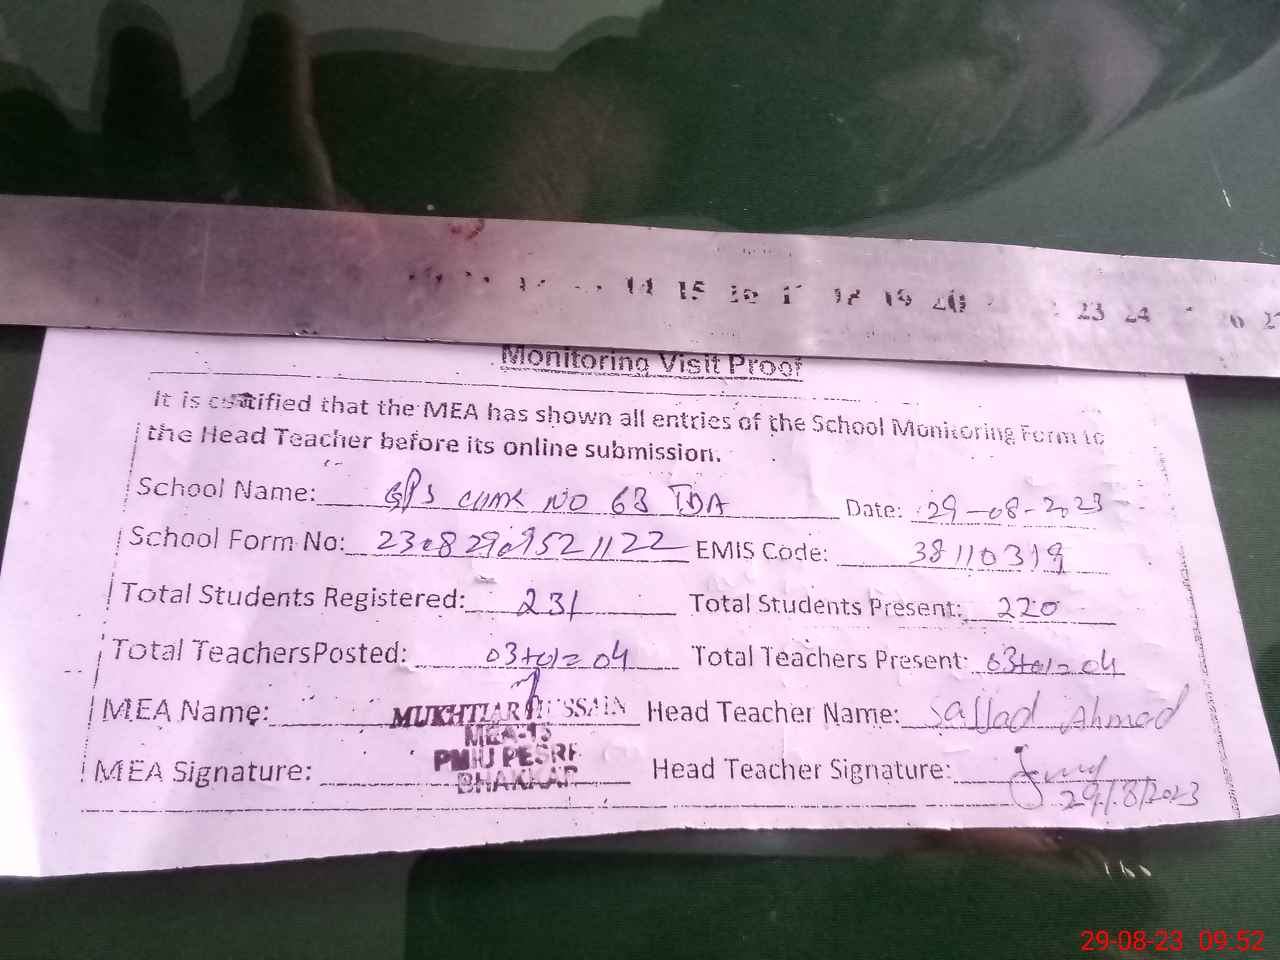 14 15 16 17 18 19 20 23 24 26
Monitoring Visit Proof
It is certified that the MEA has shown all entries of the School Monitoring Form to
the Head Teacher before its online submission.
School Name: GPS CHAK NO 63 TDA Date: 29-08-2023
School Form No: EMIS Code: 38110319
Total Students Registered: 231 Total Students Present: 220
Total TeachersPosted: 03+01=04 Total Teachers Present: 03+01=04
MEA Name: MUKHTIAR HUSSAIN Head Teacher Name: Sajjad Ahmad
MEA-13
PMIU PESRP
BHAKKAR
MEA Signature: Head Teacher Signature:
29/8/2023
29-08-23 09:52